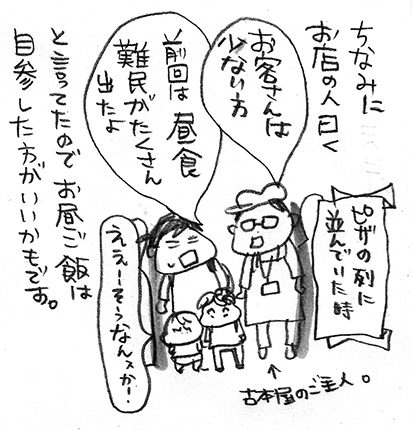 ちなみに
お店の人曰く
お客さんは
少ない方
前回は昼食
難民がたくさん
出たよ
と言ってたので お昼ご飯は
自参した方がいいかもです。
ピザの列に
並んでいた時
ええーそうなんスかー!
↑
古本屋のご主人。